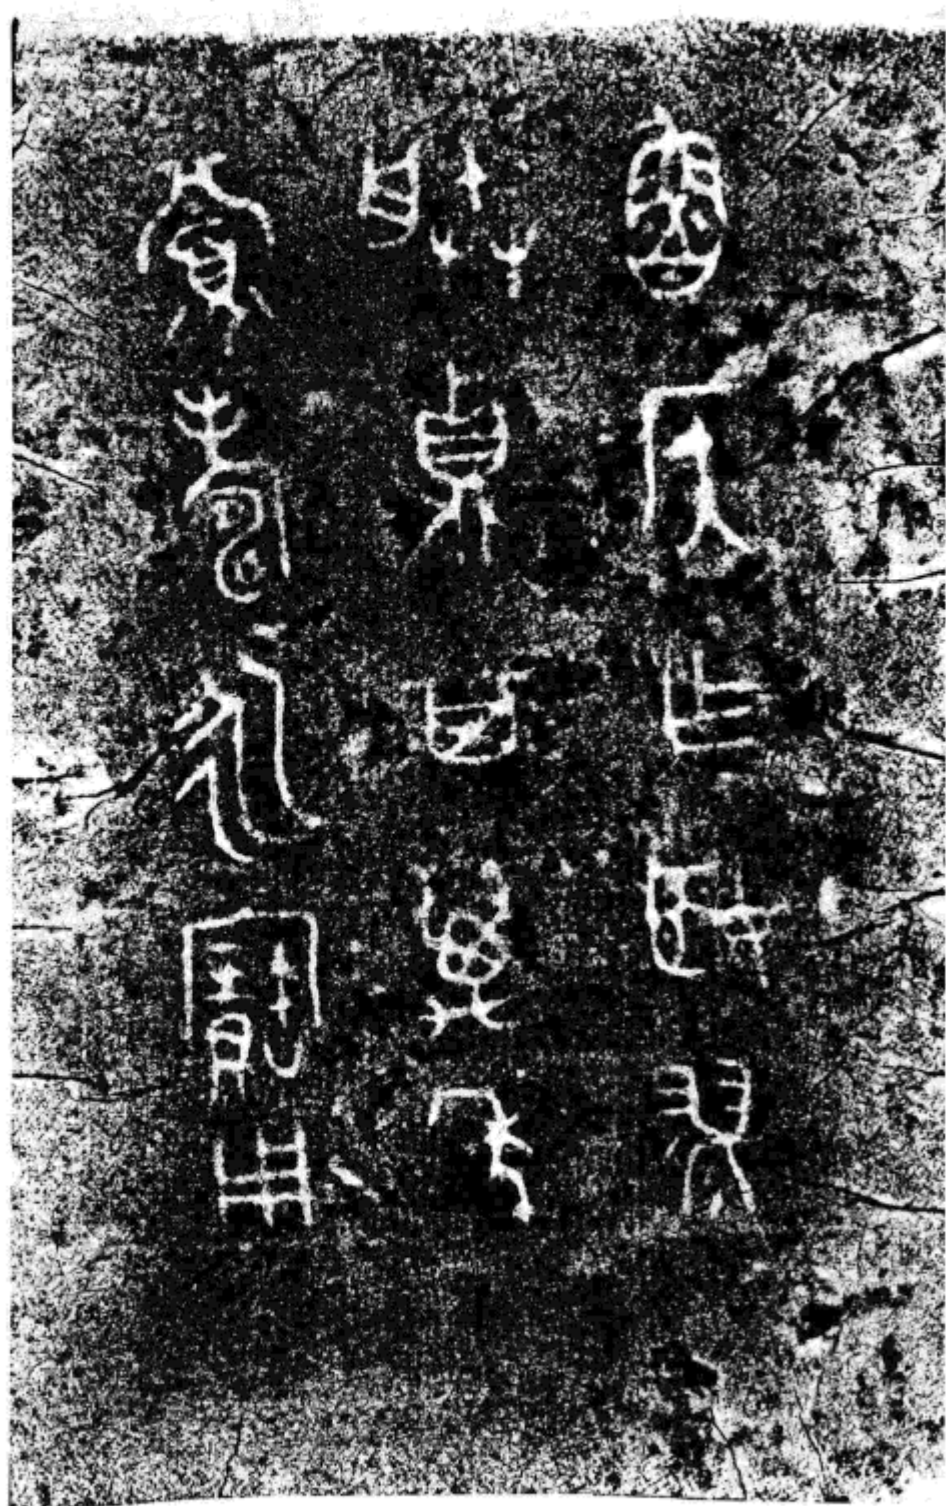 魯侯乍姬翏
朕鼎其萬年
眉壽永寶用